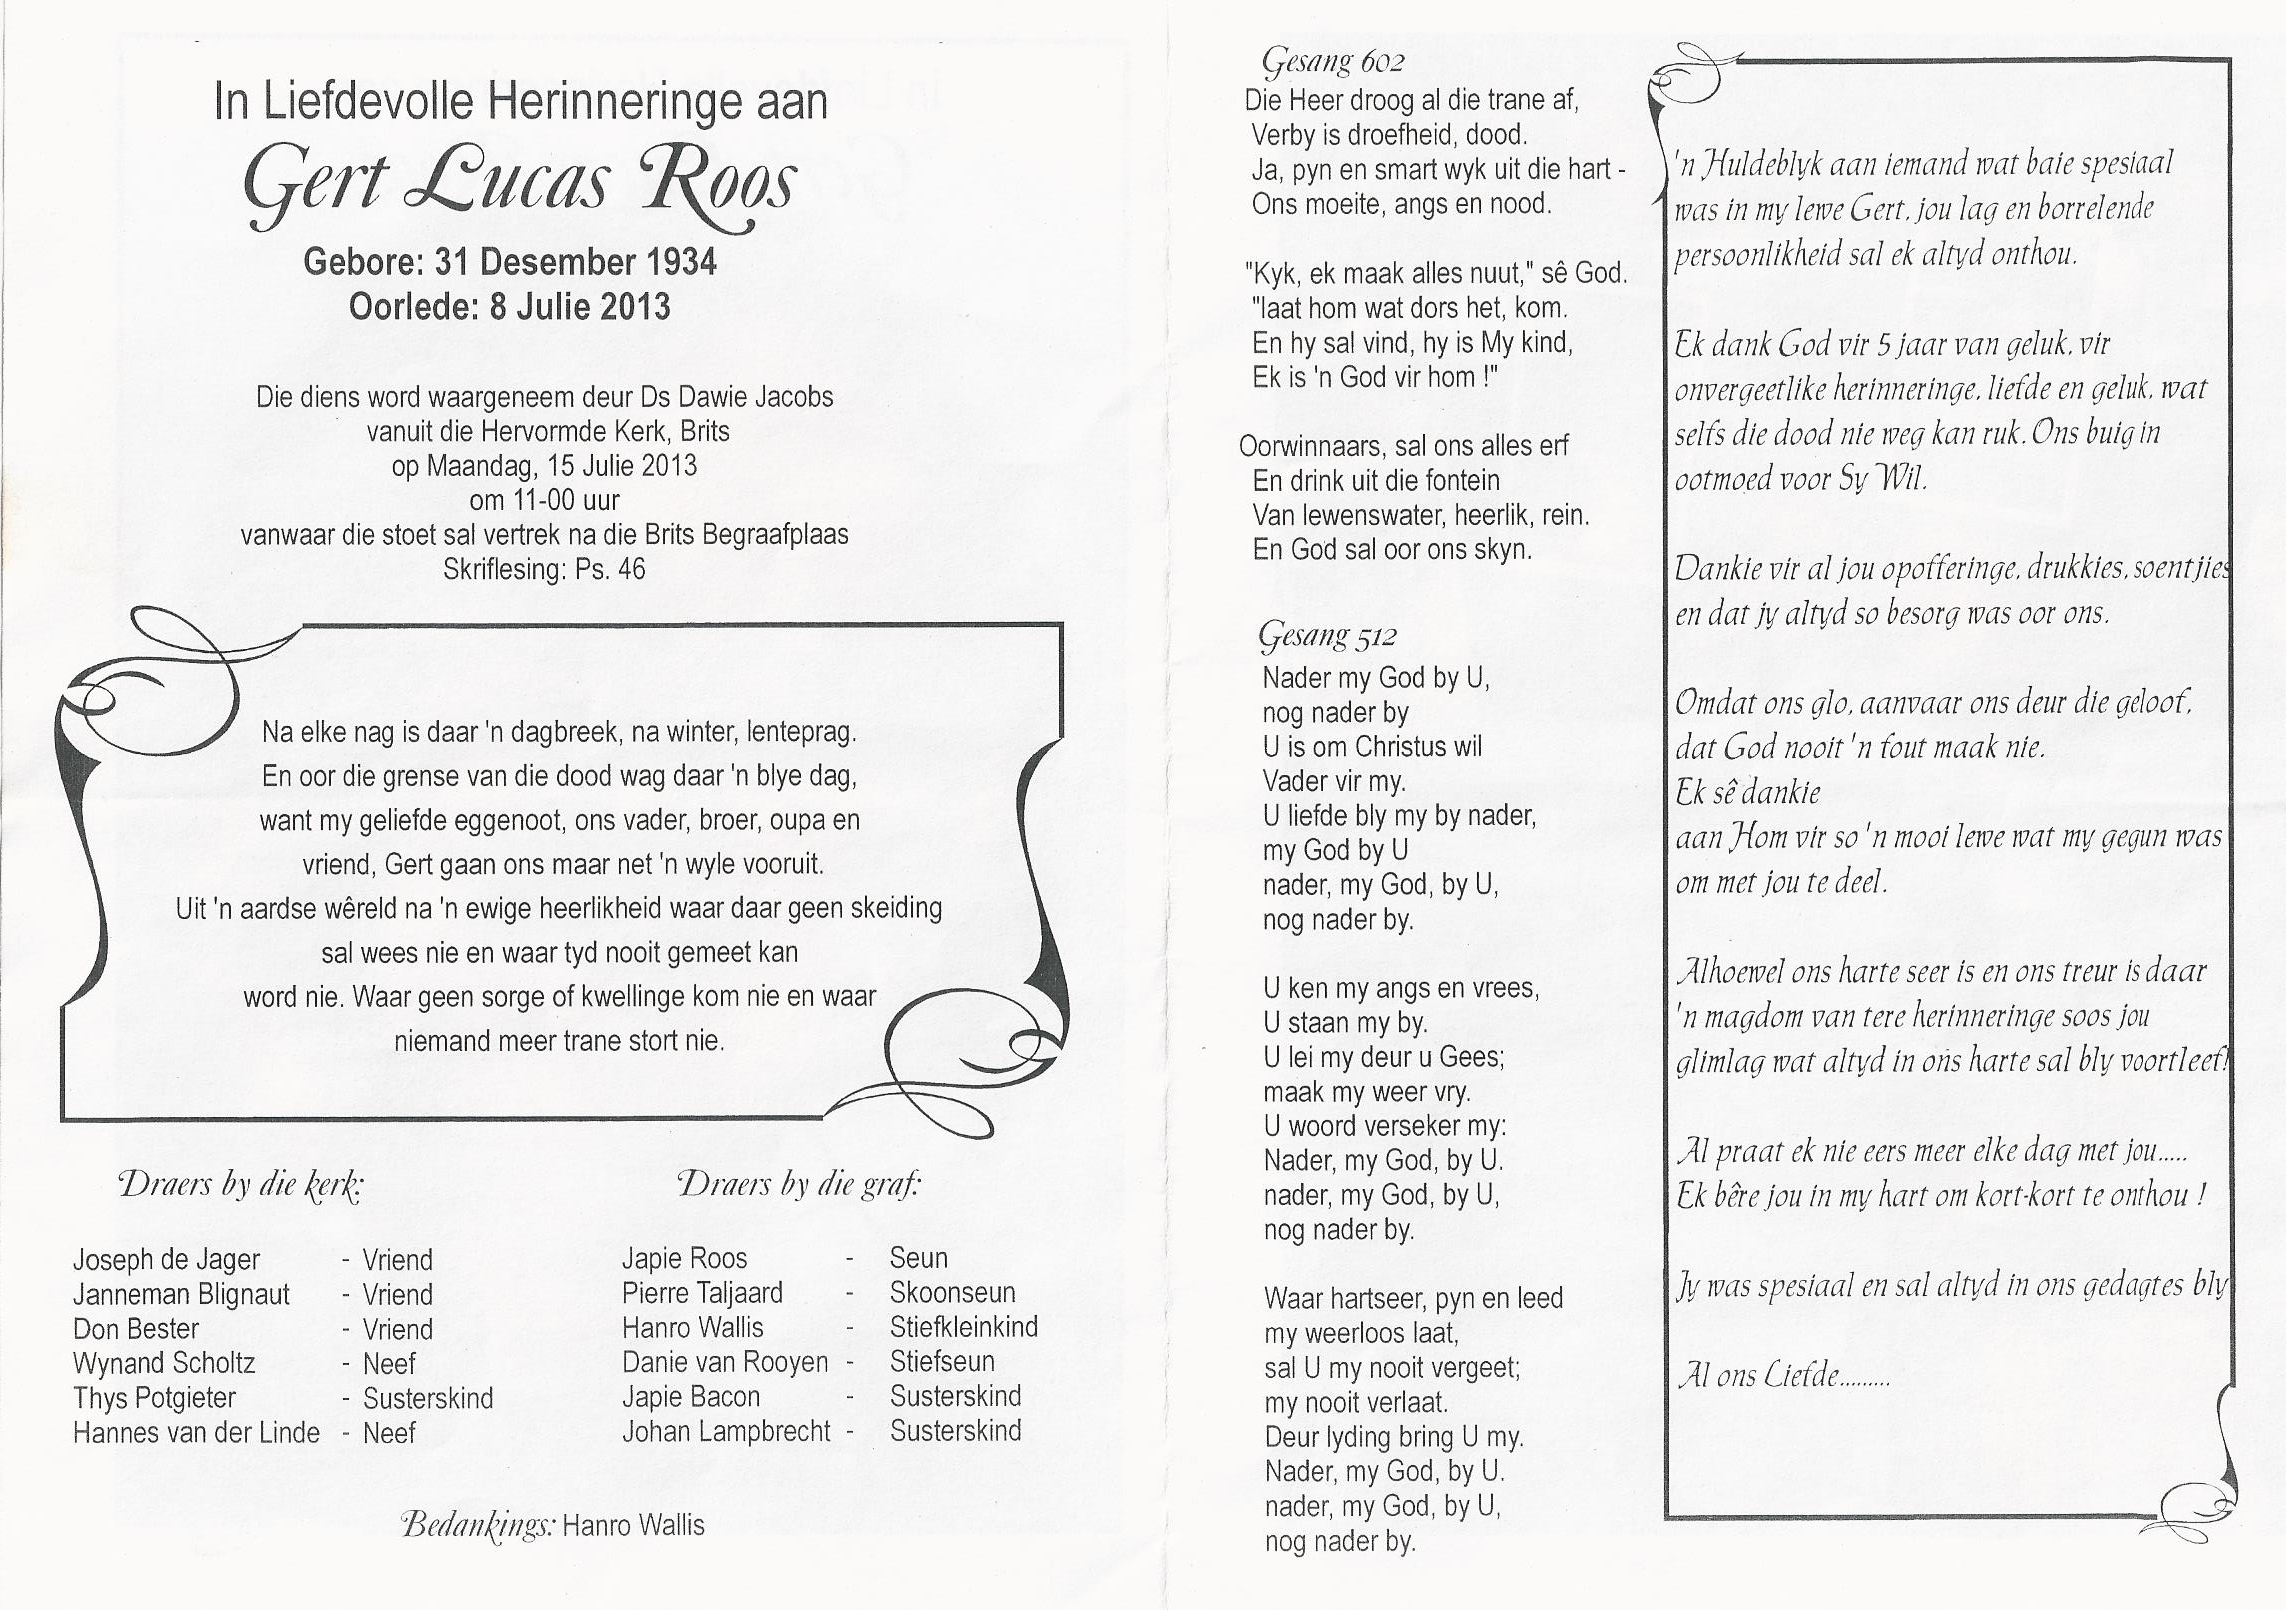 In Liefdevolle Herinneringe aan
Gert Lucas Roos
Gebore: 31 Desember 1934
Oorlede: 8 Julie 2013
Die diens word waargeneem deur Ds Dawie Jacobs
vanuit die Hervormde Kerk, Brits
op Maandag, 15 Julie 2013
om 11-00 uur
vanwaar die stoet sal vertrek na die Brits Begraafplaas
Skriflesing: Ps. 46
Na elke nag is daar 'n dagbreek, na winter, lenteprag.
En oor die grense van die dood wag daar 'n blye dag,
want my geliefde eggenoot, ons vader, broer, oupa en
vriend, Gert gaan ons maar net 'n wyle vooruit.
Uit 'n aardse wêreld na 'n ewige heerlikheid waar daar geen skeiding
sal wees nie en waar tyd nooit gemeet kan
word nie. Waar geen sorge of kwellinge kom nie en waar
niemand meer trane stort nie.
Draers by die kerk:
Joseph de Jager - Vriend
Janneman Blignaut - Vriend
Don Bester - Vriend
Wynand Scholtz - Neef
Thys Potgieter - Susterskind
Hannes van der Linde - Neef
Draers by die graf:
Japie Roos - Seun
Pierre Taljaard - Skoonseun
Hanro Wallis - Stiefkleinkind
Danie van Rooyen - Stiefseun
Japie Bacon - Susterskind
Johan Lampbrecht - Susterskind
Bedankings: Hanro Wallis
Gesang 602
Die Heer droog al die trane af,
Verby is droefheid, dood.
Ja, pyn en smart wyk uit die hart -
Ons moeite, angs en nood.
"Kyk, ek maak alles nuut," sê God.
"laat hom wat dors het, kom.
En hy sal vind, hy is My kind,
Ek is 'n God vir hom !"
Oorwinnaars, sal ons alles erf
En drink uit die fontein
Van lewenswater, heerlik, rein.
En God sal oor ons skyn.
Gesang 512
Nader my God by U,
nog nader by
U is om Christus wil
Vader vir my.
U liefde bly my by nader,
my God by U
nader, my God, by U,
nog nader by.
U ken my angs en vrees,
U staan my by.
U lei my deur u Gees;
maak my weer vry.
U woord verseker my:
Nader, my God, by U.
nader, my God, by U,
nog nader by.
Waar hartseer, pyn en leed
my weerloos laat,
sal U my nooit vergeet;
my nooit verlaat.
Deur lyding bring U my.
Nader, my God, by U.
nader, my God, by U,
nog nader by.
'n Huldeblyk aan iemand wat baie spesiaal
was in my lewe Gert, jou lag en borrelende
persoonlikheid sal ek altyd onthou.
Ek dank God vir 5 jaar van geluk, vir
onvergeetlike herinneringe, liefde en geluk, wat
selfs die dood nie weg kan ruk. Ons buig in
ootmoed voor Sy Wil.
Dankie vir al jou opofferinge, drukkies, soentjies
en dat jy altyd so besorg was oor ons.
Omdat ons glo, aanvaar ons deur die geloof,
dat God nooit 'n fout maak nie.
Ek sê dankie
aan Hom vir so 'n mooi lewe wat my gegun was
om met jou te deel.
Alhoewel ons harte seer is en ons treur is daar
'n magdom van tere herinneringe soos jou
glimlag wat altyd in ons harte sal bly voortleef!
Al praat ek nie eers meer elke dag met jou.....
Ek bêre jou in my hart om kort-kort te onthou !
Jy was spesiaal en sal altyd in ons gedagtes bly
Al ons Liefde.........